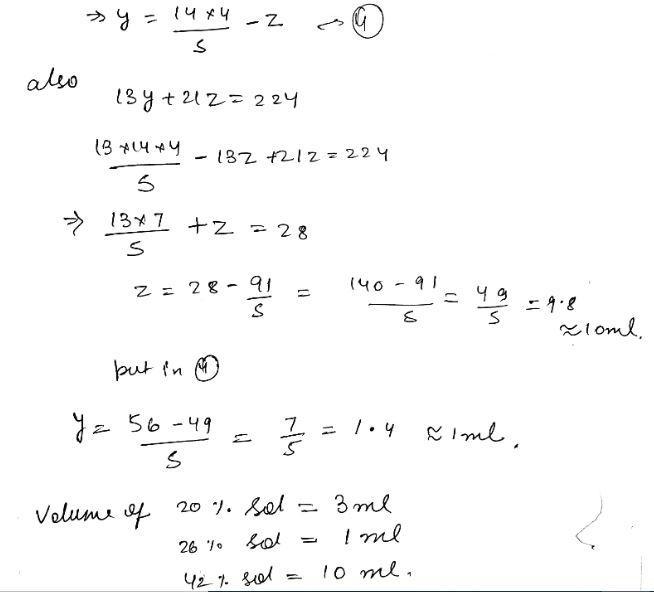 ⇒ y = 14×4/5 - z ④
also
13y + 21z = 224
13×14×4/5 - 13z + 21z = 224
⇒ 13×7/5 + z = 28
z = 28 - 91/5 = 140 - 91/5 = 49/5 = 9.8
≈ 10ml.
put in ④
y = 56 - 49/5 = 7/5 = 1.4 ≈ 1ml.
Volume of 20 % sol = 3 ml
26 % sol = 1 ml
42 % sol = 10 ml.